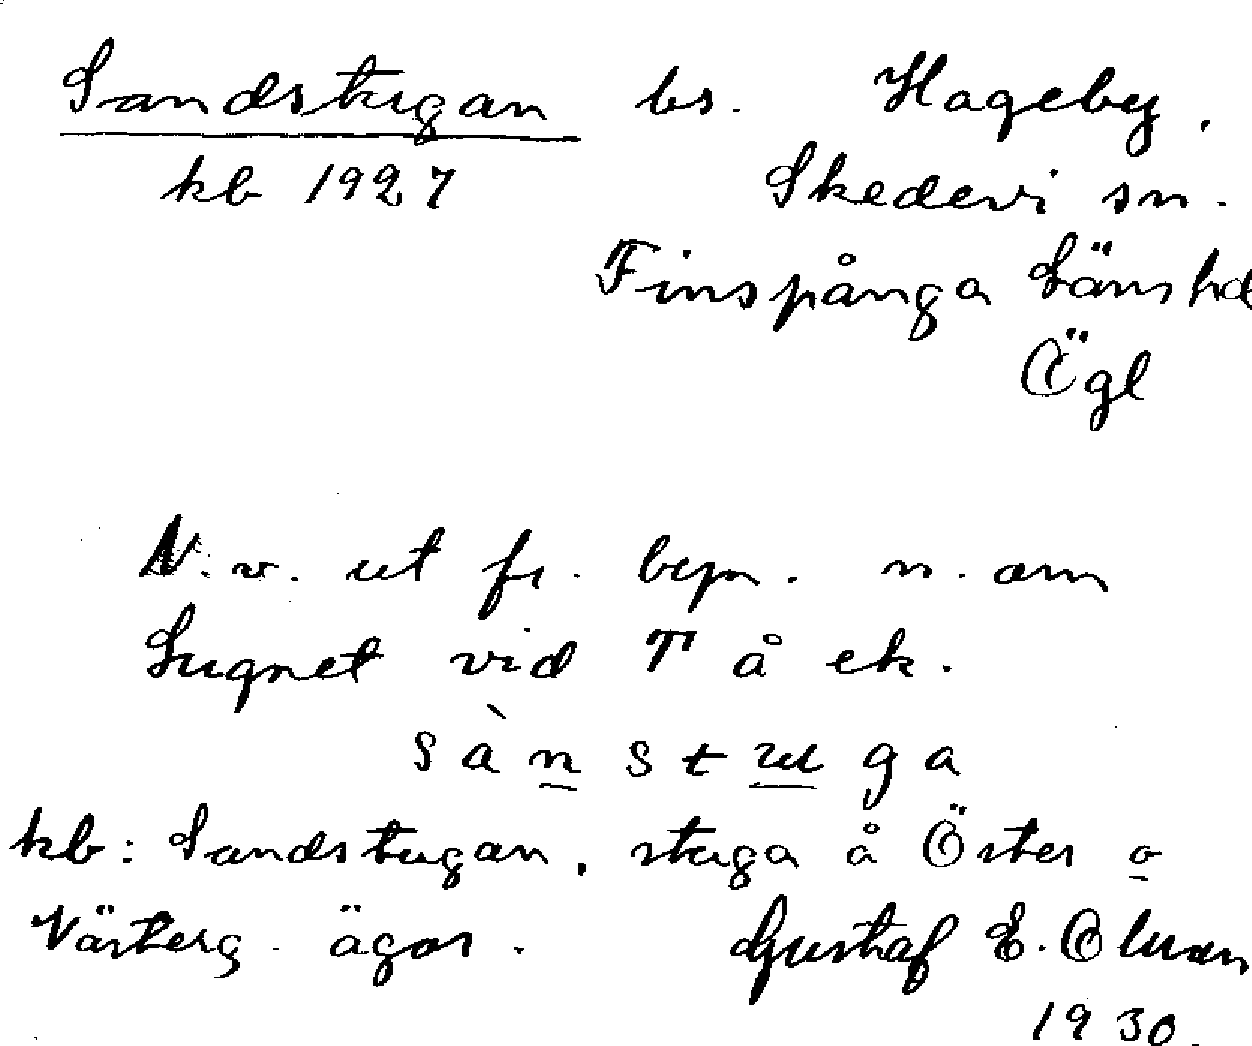 Sandstugan bs. Hageby.
kb 1927 Skedevi sn.
Finspånga Länshd
Ögl
N.v. ut fr. byn. n. om
Lugnet vid T å ek.
s à n s t u g a
kb: Sandstugan, stuga å Öster o
Västerg. ägor. Gustaf E. Olsson
1930.